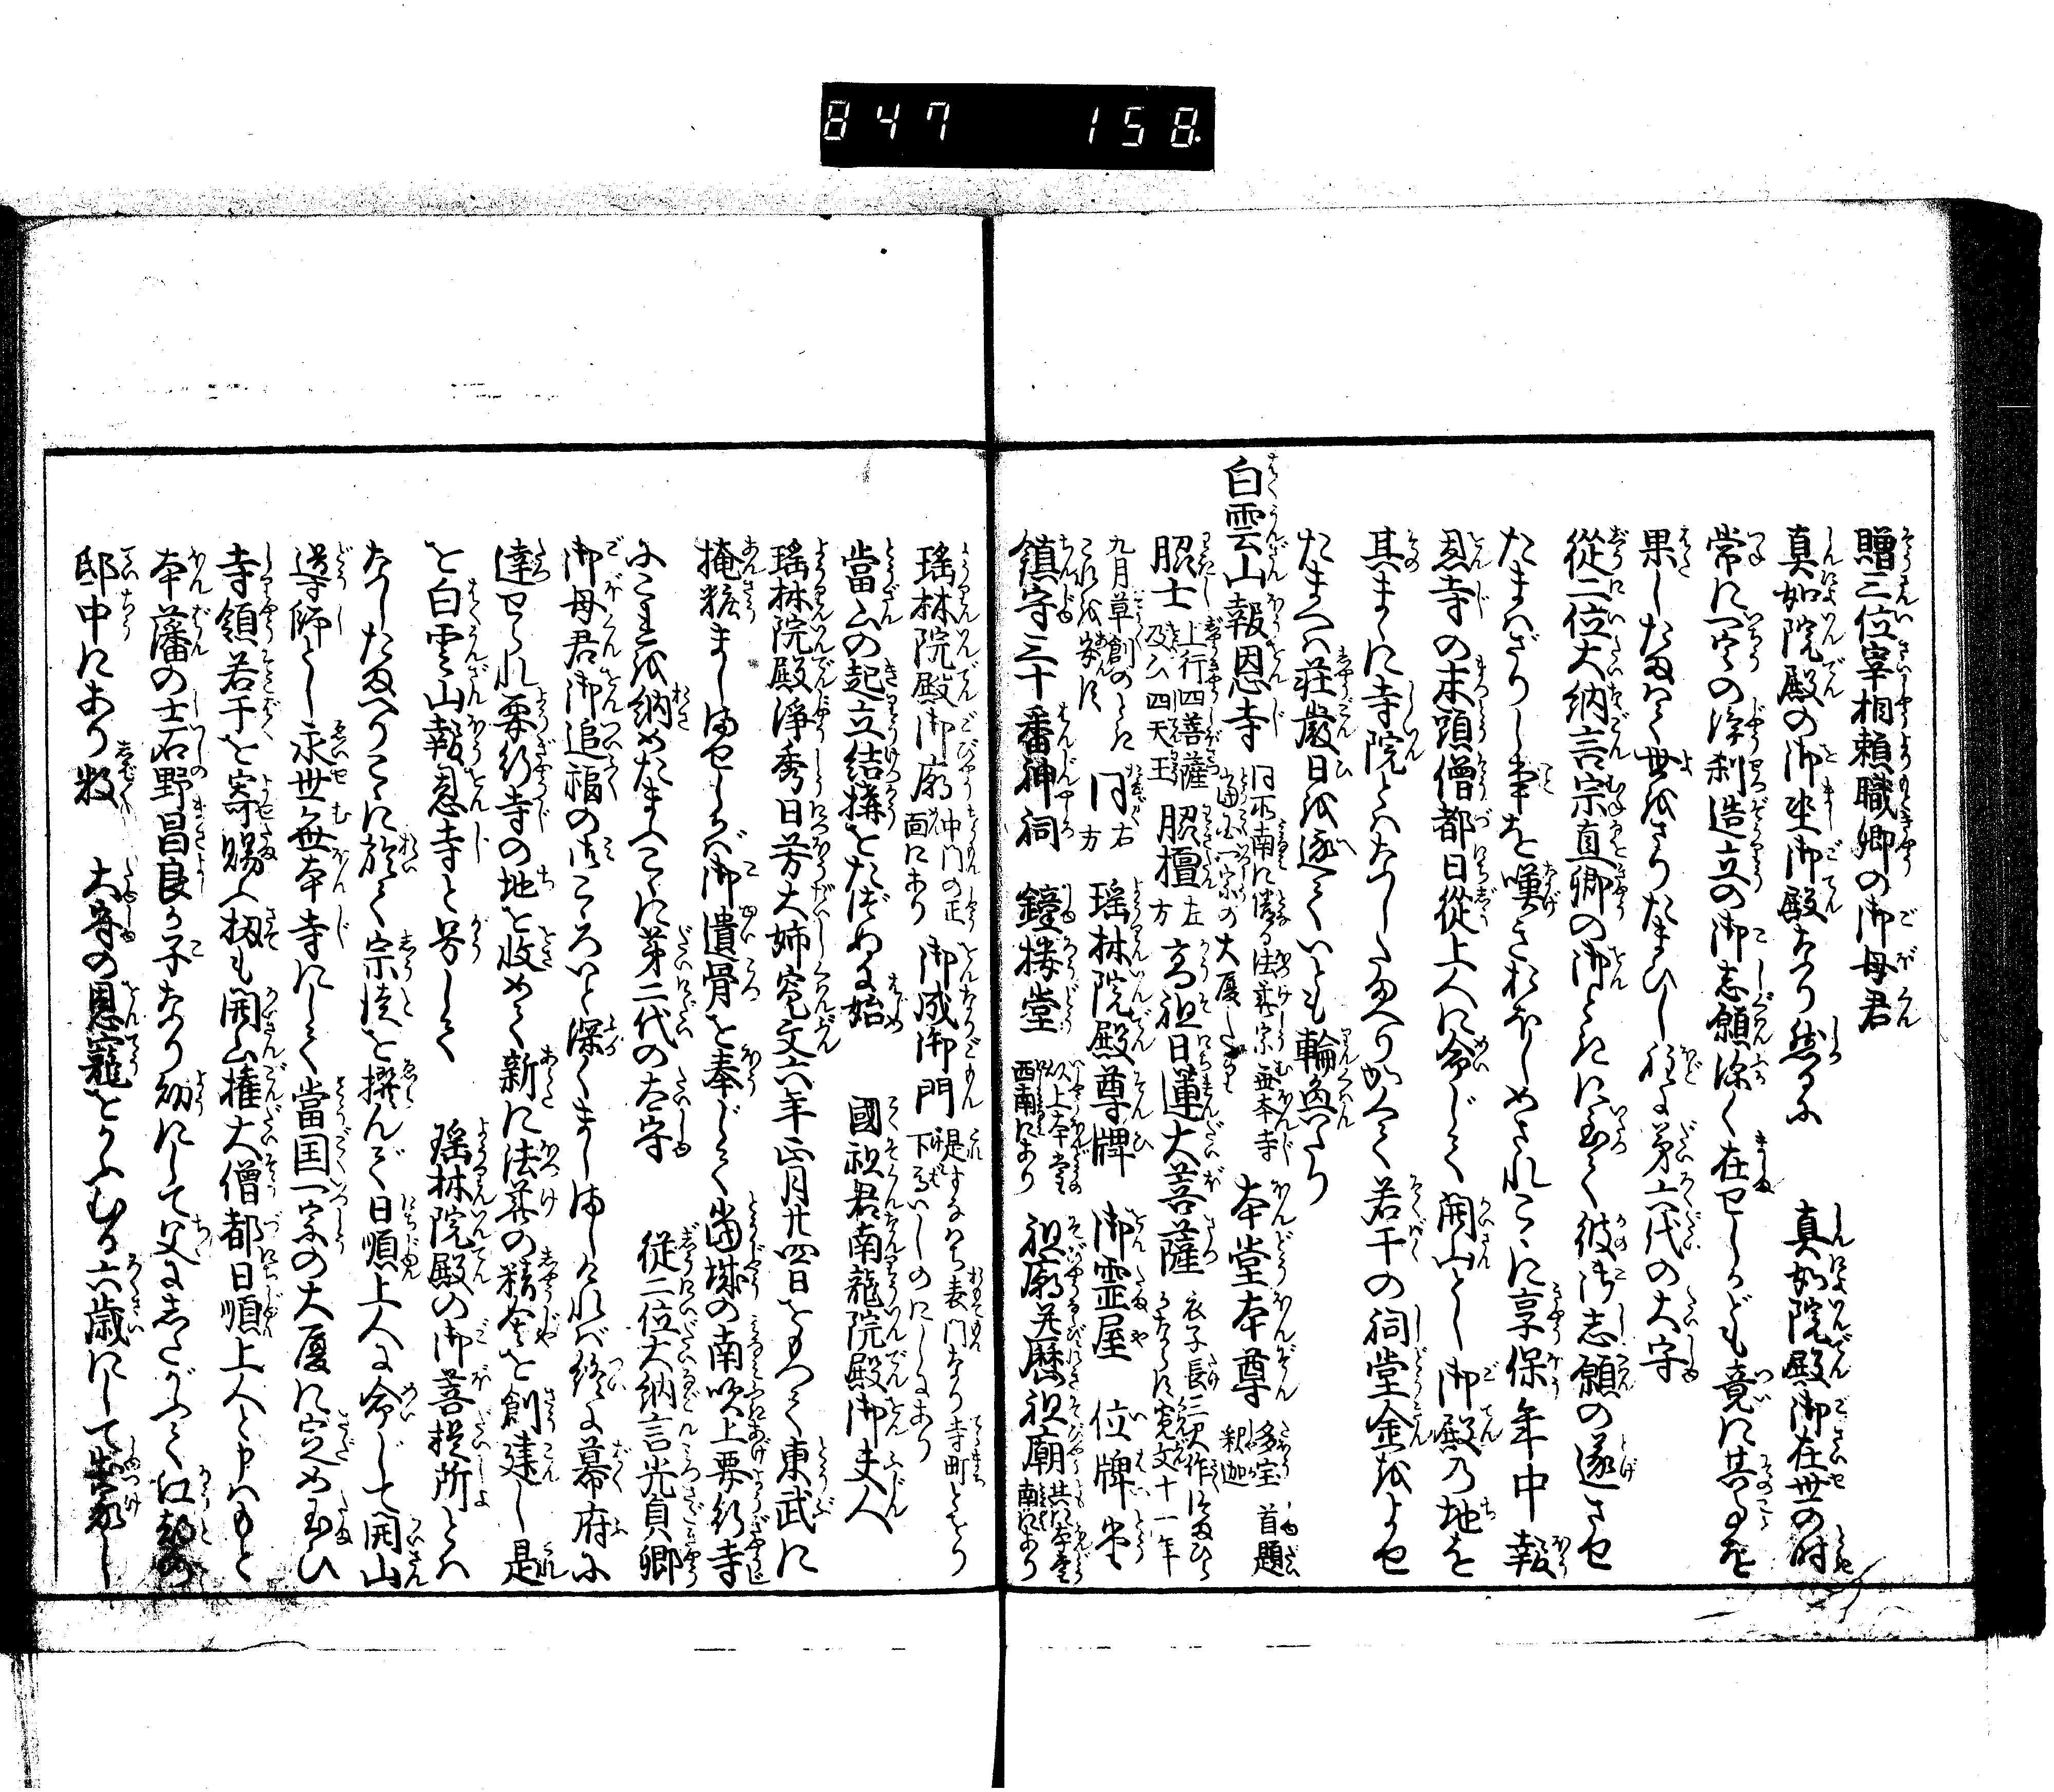 847 158
贈三位宰相頼職卿の御母君
真如院殿の御坐御殿なり然るに 真如院殿御在世の時
常に一宇の浄刹造立の御志願深く在せしかども竟に其事を
果したまはで世をさりたまひし程に第六代の大守
従二位大納言宗直卿の御ときに至て彼御志願の遂させ
たまはざりし事を嘆きおぼしめされこゝに享保年中報
恩寺の末頭僧都日従上人に命じて開山とし御殿の地を
其まゝに寺院とはなしたまへりかくて若干の祠堂金をよせ
たまへば荘厳日を逐ていとも輪奐たり
白雲山報恩寺 同所南に隣る法華宗無本寺当国一宗の大厦たり 本堂本尊 多宝釈迦首題
脇士 上行四菩薩及び四天王 脇檀左方 高祖日蓮大菩薩 衣子長三尺作つまびらかならず寛文十一年
九月草創のときこれを安ず 同右方 瑶林院殿尊牌 御霊屋 位牌堂
鎮守三十番神祠 鐘楼堂 以上本堂の西南にあり 祖廟并歴祖廟 共に本堂の南にあり
瑶林院殿御廟 中門の正面にあり 御成御門 是すなはち表門なり寺町とをり下馬いしのにしにあり
当山の起立結構をたづぬるに始 国祖君南龍院殿御夫人
瑶林院殿浄秀日芳大姉寛文六年正月廿四日をもつて東武に
掩粧ましませしかば御遺骨を奉じて当城の南吹上要行寺
にこれを納めたまへこゝに第二代の大守 従二位大納言光貞卿
御母君御追福の御こゝろいと深くましましければ終に幕府に
達せられ要行寺の地を収めて新に法華の精舎を創建し是
を白雲山報恩寺と号して 瑶林院殿の御菩提所とは
なしたまへりこゝに於て宗徒を撰んで日順上人に命じて開山
導師とし永世無本寺にして当国一宗の大厦に定め玉ひ
寺領若干を寄賜ふ抑も開山権大僧都日順上人と申はもと
本藩の士石野昌良が子なり幼にして父にしたがふて江都の
邸中にあり数 大守の恩寵をかふむる六歳にして出家し